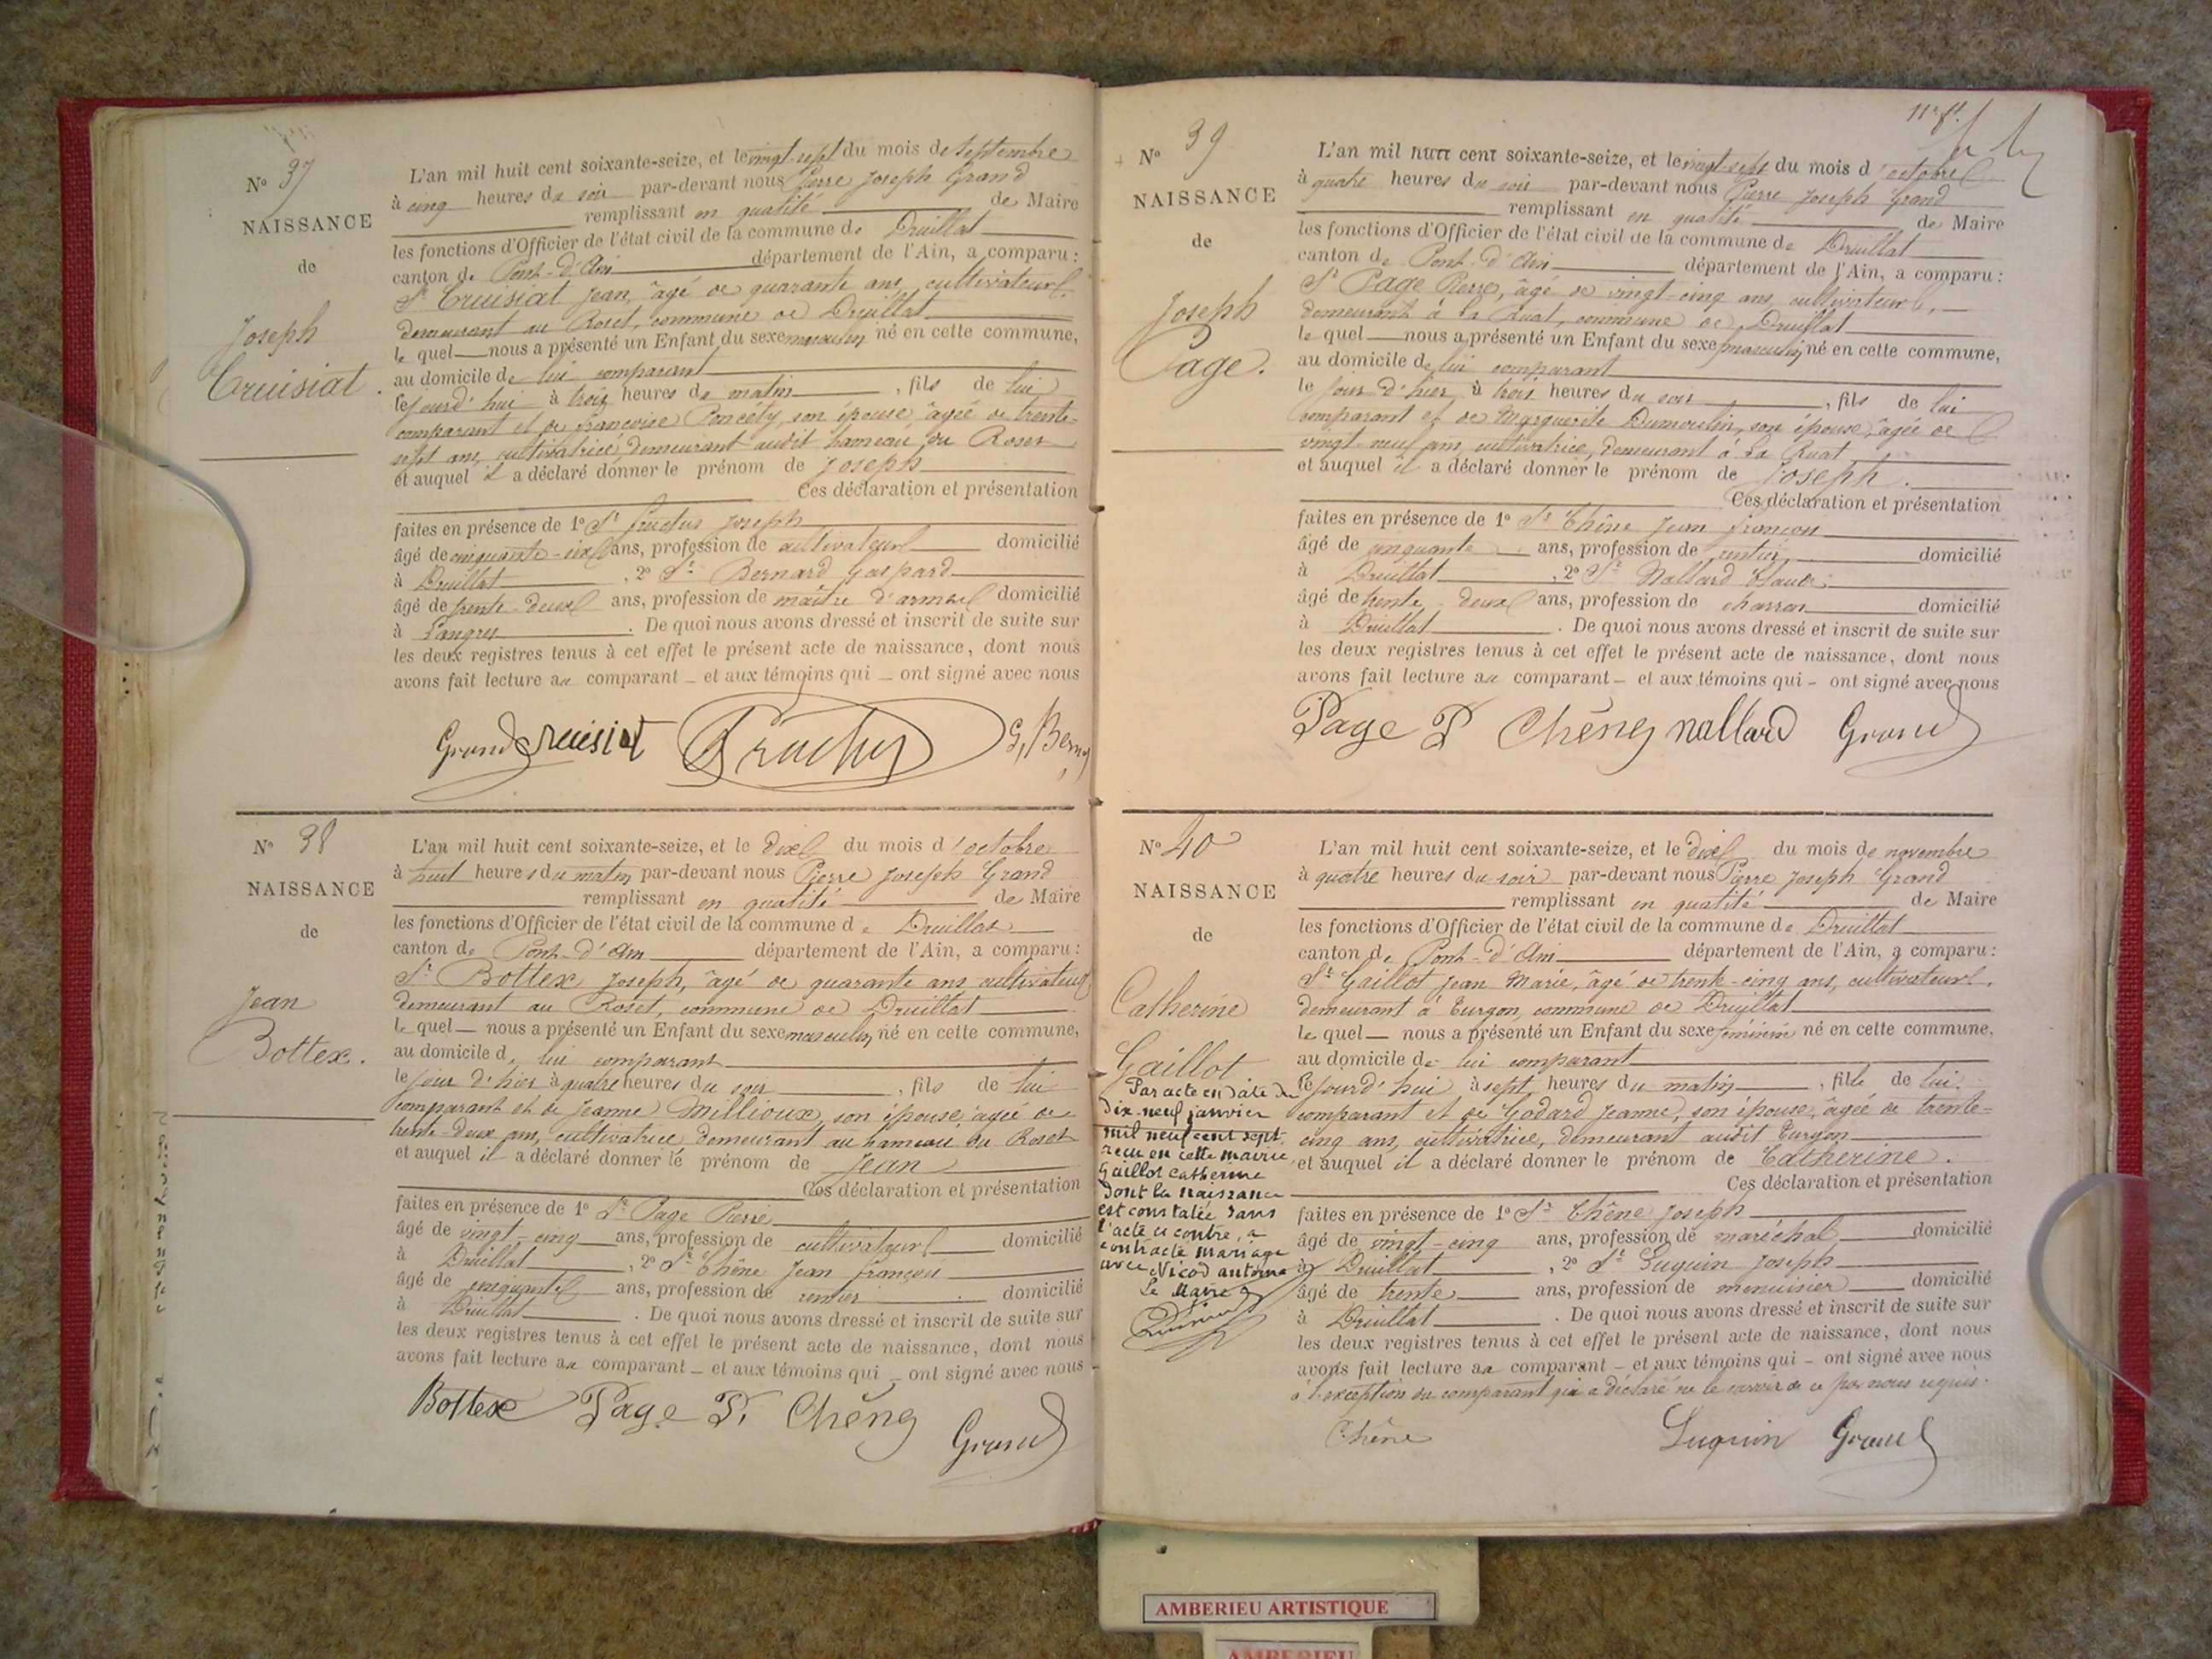 N° 37
NAISSANCE
de
Joseph
Cruisiat.
L'an mil huit cent soixante-seize, et le vingt-sept du mois de septembre
à cinq heures du soir par-devant nous Pierre Joseph Grand
remplissant en qualité de Maire
les fonctions d'Officier de l'état civil de la commune de Druillat
canton de Pont-d'Ain département de l'Ain, a comparu :
Sr Cruisiat Jean, âgé de quarante ans, cultivateur
demeurant au Roset, commune de Druillat
le quel nous a présenté un Enfant du sexe masculin né en cette commune,
au domicile de lui comparant
le jourd'hui à trois heures du matin, fils de lui
comparant et de Françoise Poncety, son épouse, âgée de trente-
sept ans, cultivatrice, demeurant audit hameau du Roset
et auquel il a déclaré donner le prénom de Joseph
Ces déclaration et présentation
faites en présence de 1° Sr Fructus Joseph
âgé de cinquante-six ans, profession de cultivateur domicilié
à Druillat, 2° Sr Bernard Gaspard
âgé de trente-deux ans, profession de maître d'armes domicilié
à Langres. De quoi nous avons dressé et inscrit de suite sur
les deux registres tenus à cet effet le présent acte de naissance, dont nous
avons fait lecture au comparant et aux témoins qui ont signé avec nous
Grand Cruisiat Fructus G, Bern
N° 38
NAISSANCE
de
Jean
Bottex.
L'an mil huit cent soixante-seize, et le dix du mois d'octobre
à huit heures du matin par-devant nous Pierre Joseph Grand
remplissant en qualité de Maire
les fonctions d'Officier de l'état civil de la commune de Druillat
canton de Pont-d'Ain département de l'Ain, a comparu :
Sr Bottex Joseph, âgé de quarante ans cultivateur
demeurant au Roset, commune de Druillat
le quel nous a présenté un Enfant du sexe masculin né en cette commune,
au domicile de lui comparant
le jour d'hier à quatre heures du soir, fils de lui
comparant et de Jeanne Millioux, son épouse, âgée de
trente-deux ans, cultivatrice demeurant au hameau du Roset
et auquel il a déclaré donner le prénom de Jean
Ces déclaration et présentation
faites en présence de 1° Sr Page Pierre
âgé de vingt-cinq ans, profession de cultivateur domicilié
à Druillat, 2° Sr Chêne Jean François
âgé de cinquante ans, profession de rentier domicilié
à Druillat. De quoi nous avons dressé et inscrit de suite sur
les deux registres tenus à cet effet le présent acte de naissance, dont nous
avons fait lecture au comparant et aux témoins qui ont signé avec nous
Bottex Page P. Chêne Grand
11e ft.
N° 39
NAISSANCE
de
Joseph
Page.
L'an mil huit cent soixante-seize, et le vingt-sept du mois d'octobre
à quatre heures du soir par-devant nous Pierre Joseph Grand
remplissant en qualité de Maire
les fonctions d'Officier de l'état civil de la commune de Druillat
canton de Pont-d'Ain département de l'Ain, a comparu :
Sr Page Pierre, âgé de vingt-cinq ans, cultivateur,
demeurant à La Ruat, commune de Druillat
le quel nous a présenté un Enfant du sexe masculin né en cette commune,
au domicile de lui comparant
le jour d'hier, à trois heures du soir, fils de lui
comparant et de Marguerite Dumoulin, son épouse, âgée de
vingt-neuf ans, cultivatrice, demeurant à La Ruat
et auquel il a déclaré donner le prénom de Joseph.
Ces déclaration et présentation
faites en présence de 1° Sr Chêne Jean François
âgé de cinquante ans, profession de rentier domicilié
à Druillat, 2° Sr Nallard Claude
âgé de trente deux ans, profession de charron domicilié
à Druillat. De quoi nous avons dressé et inscrit de suite sur
les deux registres tenus à cet effet le présent acte de naissance, dont nous
avons fait lecture au comparant et aux témoins qui ont signé avec nous
Page P Chêne nallard Grand
N° 40
NAISSANCE
de
Catherine
Gaillot
Par acte en date du
Dix-neuf janvier
mil neuf cent sept
reçu en cette mairie,
Gaillot Catherine
dont la naissance
est constatée dans
l'acte ci contre, a
contracté mariage
avec Nicod antoine
Le Maire
L'an mil huit cent soixante-seize, et le dix du mois de novembre
à quatre heures du soir par-devant nous Pierre Joseph Grand
remplissant en qualité de Maire
les fonctions d'Officier de l'état civil de la commune de Druillat
canton de Pont-d'Ain département de l'Ain, a comparu :
Sr Gaillot Jean Marie, âgé de trente-cinq ans, cultivateur,
demeurant à Turgon, commune de Druillat
le quel nous a présenté un Enfant du sexe féminin né en cette commune,
au domicile de lui comparant
le jourd'hui à sept heures du matin, fille de lui
comparant et de Godard Jeanne, son épouse, âgée de trente-
cinq ans, cultivatrice, demeurant audit Turgon
et auquel il a déclaré donner le prénom de Catherine.
Ces déclaration et présentation
faites en présence de 1° Sr Chêne Joseph
âgé de vingt-cinq ans, profession de maréchal domicilié
à Druillat, 2° Sr Luquin Joseph
âgé de trente ans, profession de menuisier domicilié
à Druillat. De quoi nous avons dressé et inscrit de suite sur
les deux registres tenus à cet effet le présent acte de naissance, dont nous
avons fait lecture au comparant et aux témoins qui ont signé avec nous
à l'exception du comparant qui a déclaré ne le savoir de ce par nous requis.
Chêne Luquin Grand
AMBERIEU ARTISTIQUE
AMBERIEU